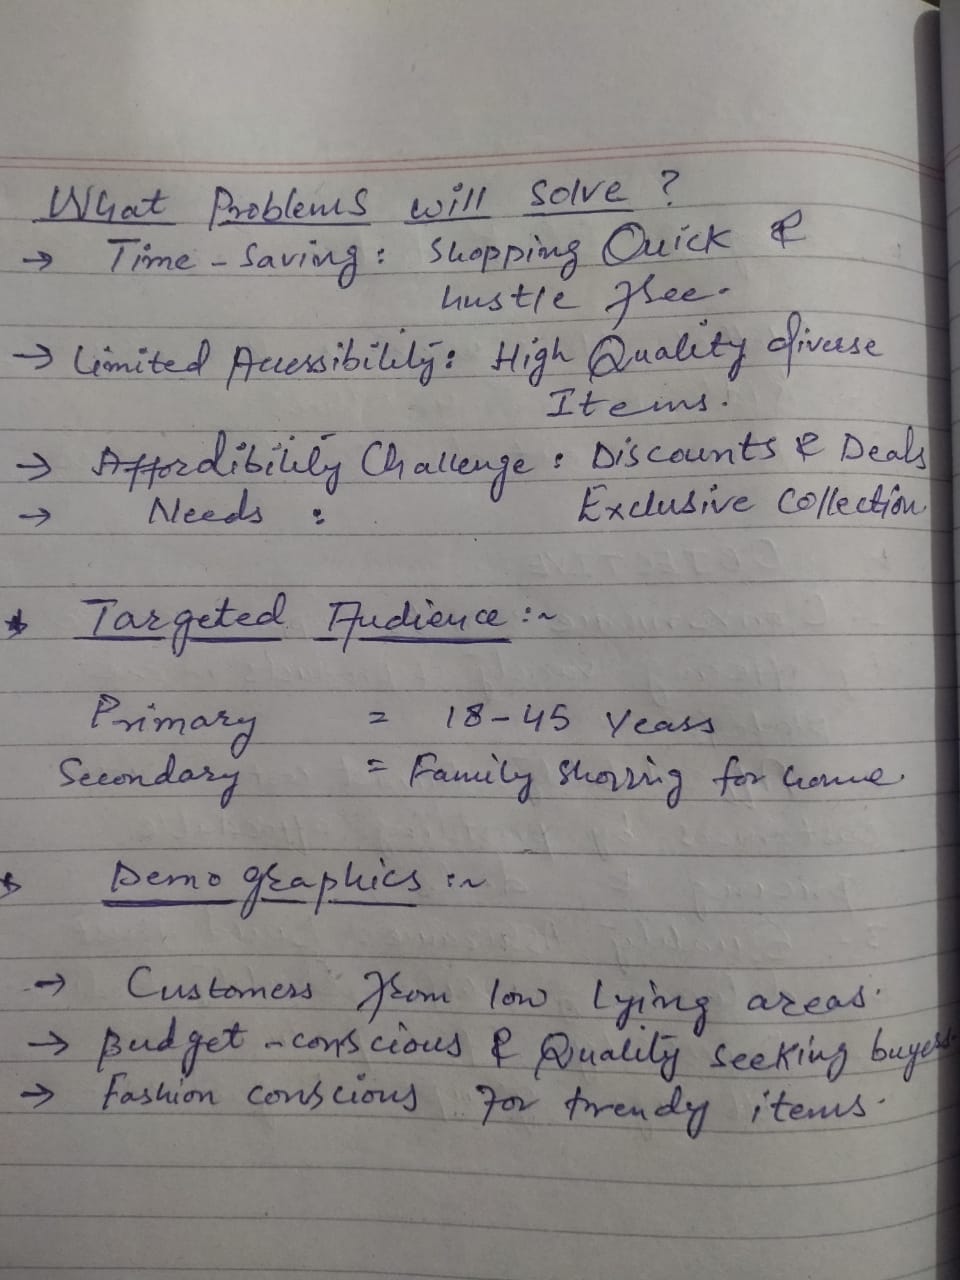 What Problems will solve ?
→ Time - Saving : Shopping Quick &
hustle free.
→ Limited Accessibility : High Quality diverse
Items.
→ Affordibility Challenge : Discounts & Deals
→ Needs : Exclusive Collection
* Targeted Audience :~
Primary = 18-45 Years
Secondary = Family shopping for home.
* Demographics :~
→ Customers from low lying areas.
→ Budget - conscious & Quality seeking buyers.
→ Fashion conscious for trendy items.